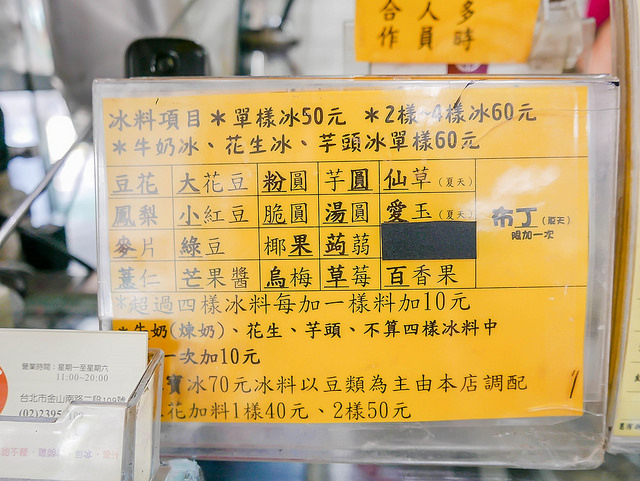 合人多
作員時
冰料項目＊單樣冰50元 ＊2樣~4樣冰60元
＊牛奶冰、花生冰、芋頭冰單樣60元
豆花 大花豆 粉圓 芋圓 仙草(夏天)
鳳梨 小紅豆 脆圓 湯圓 愛玉(夏天) 布丁(夏天)
限加一次
麥片 綠豆 椰果 蒟蒻
薏仁 芒果醬 烏梅 草莓 百香果
＊超過四樣冰料每加一樣料加10元
＊牛奶(煉奶)、花生、芋頭、不算四樣冰料中
一次加10元
寶冰70元冰料以豆類為主由本店調配
花加料1樣40元、2樣50元
營業時間：星期一至星期六
11:00~20:00
台北市金山南路二段
(02)2395